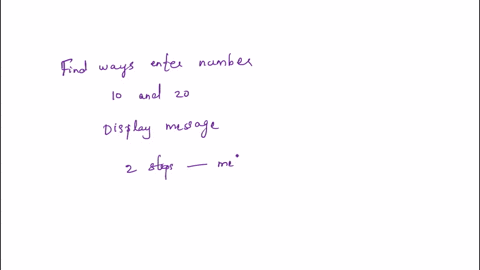 Find ways enter number
10 and 20
Display message
2 steps — me